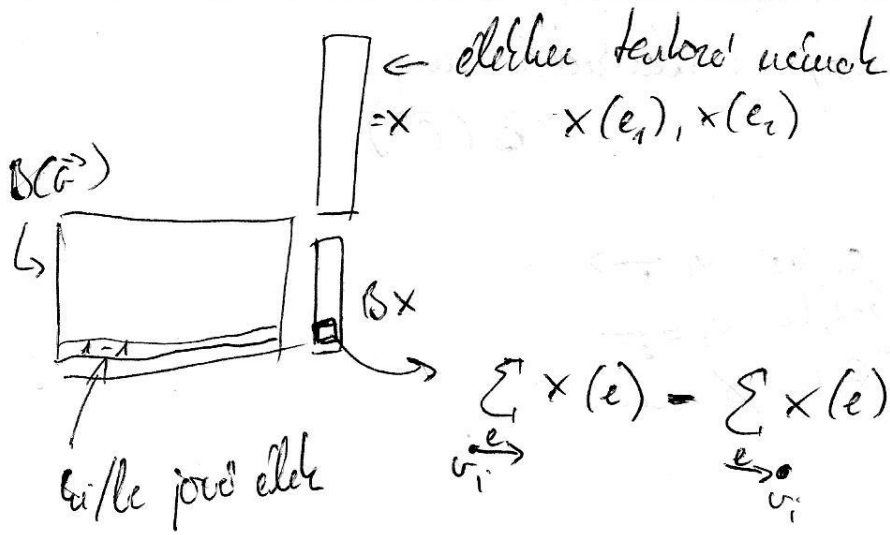 ← élekhez tartozó számok
=x x(e₁), x(e₂)
B(G⃗)
Bx
1 -1
∑ x(e) - ∑ x(e)
e e
vᵢ vᵢ
ki/be jövő élek